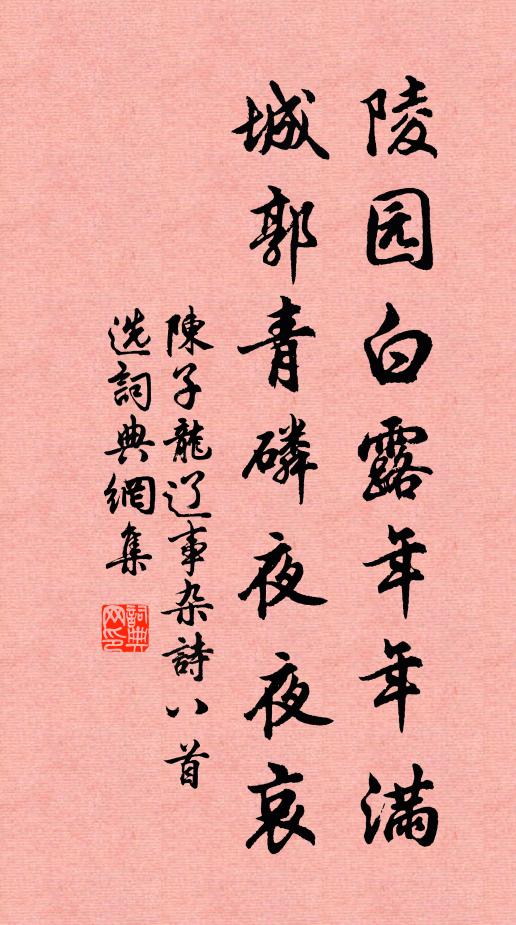 陵园白露年年满
城郭青磷夜夜哀
陳子龍辽事杂詩八首
选詞典網集
詞典
网印